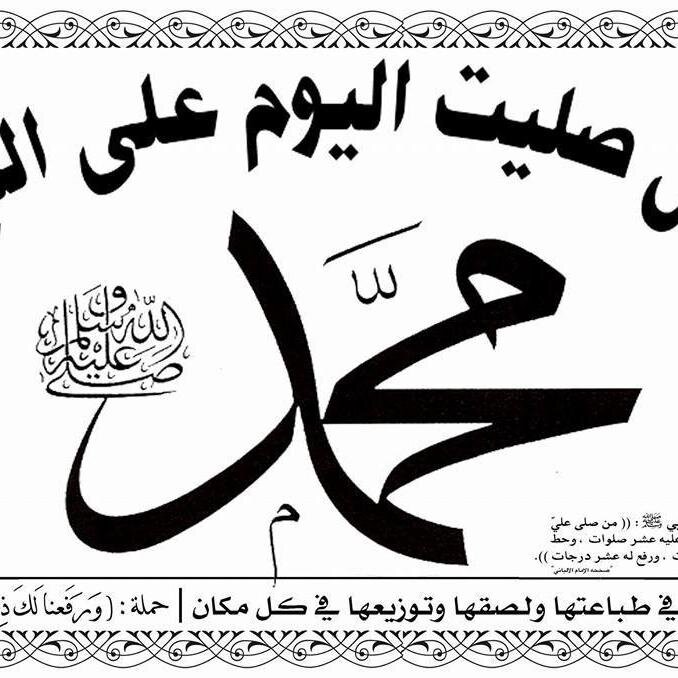 صليت اليوم على
محمد
صلى الله عليه وسلم
ﷺ : (( من صلى عليّ
عليه عشر صلوات ، وحط
، ورفع له عشر درجات )).
"صححه الإمام الألباني"
في طباعتها ولصقها وتوزيعها في كل مكان | حملة : ( وَرَفَعْنَا لَكَ